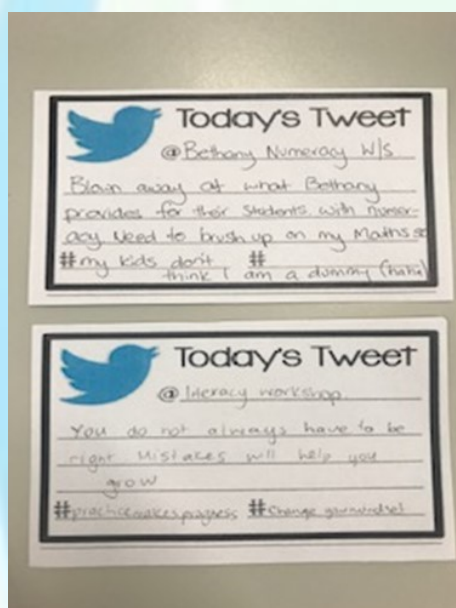 Today's Tweet
@ Bethany Numeracy W/S
Blown away at what Bethany
provides for their students with numer-
acy Need to brush up on my Maths so
#my kids don't #
think I am a dummy (haha)
Today's Tweet
@ literacy workshop
You do not always have to be
right Mistakes will help you
grow
#practicemakesprogress #Change yourmindset